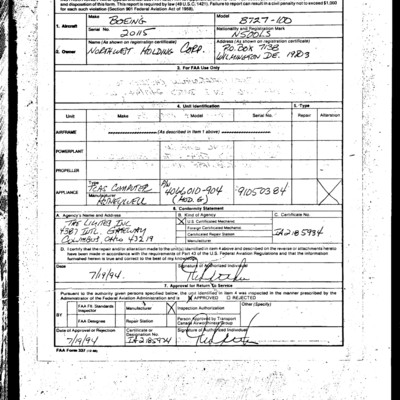 and disposition of this form. This report is required by law (49 U.S.C. 1421). Failure to report can result in a civil penalty not to exceed $1,000
for each such violation (Section 901 Federal Aviation Act of 1958).
1. Aircraft
Make
BOEING
Model
B727-100
Serial No.
20115
Nationality and Registration Mark
2. Owner
Name (As shown on registration certificate)
NORTHWEST HOLDING CORP.
Address (As shown on registration certificate)
P.O. BOX 7138
WILMINGTON DE. 19803
3. For FAA Use Only
4. Unit Identification
5. Type
Unit
Make
Model
Serial No.
Repair
Alteration
AIRFRAME
(As described in Item 1 above)
POWERPLANT
PROPELLER
APPLIANCE
Type
TCAS COMPUTER
Manufacturer
HONEYWELL
P/N
4066010-904
(MOD. G)
91050384
6. Conformity Statement
A. Agency's Name and Address
B. Kind of Agency
C. Certificate No.
INC
4387 INTL GATEWAY
COLUMBUS, OHIO 43219
U.S. Certificated Mechanic
Foreign Certificated Mechanic
Certificated Repair Station
Manufacturer
IA2185934
D. I certify that the repair and/or alteration made to the unit(s) identified in item 4 above and described on the reverse or attachments hereto
have been made in accordance with the requirements of Part 43 of the U.S. Federal Aviation Regulations and that the information
furnished herein is true and correct to the best of my knowledge.
Date
7/19/94.
Signature of Authorized Individual
7. Approval for Return To Service
Pursuant to the authority given persons specified below, the unit identified in item 4 was inspected in the manner prescribed by the
Administrator of the Federal Aviation Administration and is
APPROVED
REJECTED
BY
FAA Flt. Standards
Inspector
Manufacturer
Inspection Authorization
Other (Specify)
FAA Designee
Repair Station
Person Approved by Transport
Canada Airworthiness Group
Date of Approval or Rejection
7/19/94
Certificate or
Designation No.
IA2185934
Signature of Authorized Individual
FAA Form 337